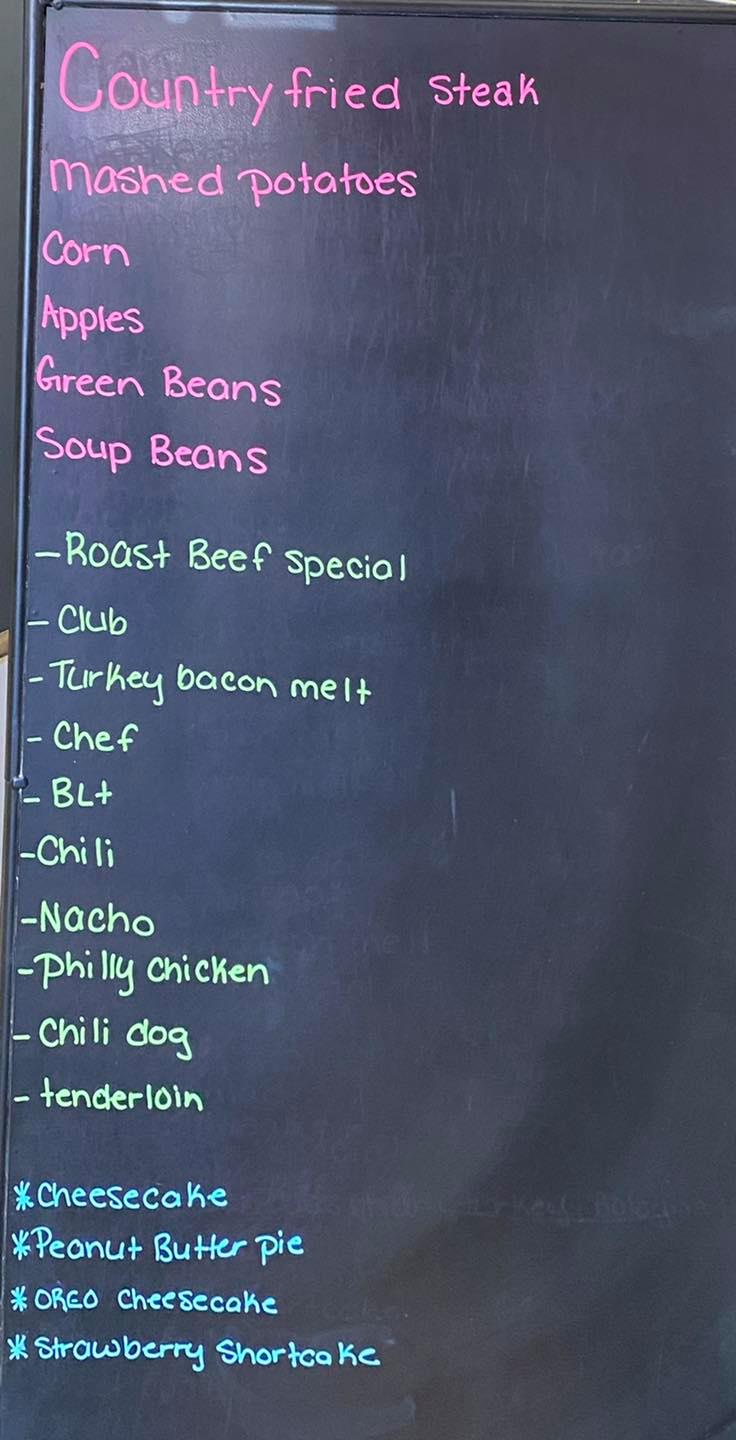 Country fried Steak
Mashed potatoes
Corn
Apples
Green Beans
Soup Beans
- Roast Beef Special
- Club
- Turkey bacon melt
- Chef
- BLt
- Chili
- Nacho
- Philly Chicken
- Chili dog
- tenderloin
* Cheesecake
* Peanut Butter pie
* OREO Cheesecake
* Strawberry Shortcake